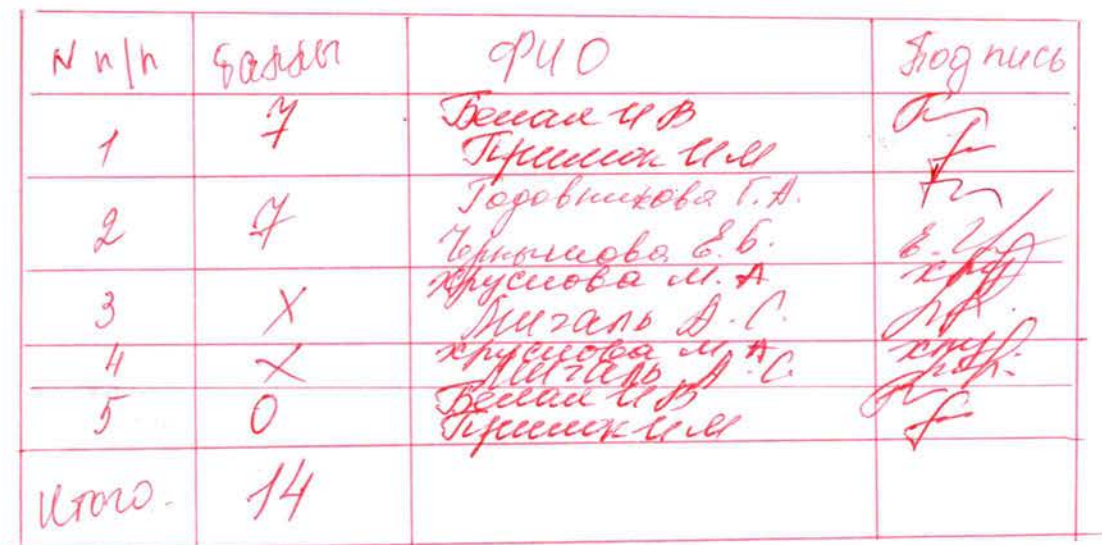 N п/п баллы ФИО Подпись
1 7 Белая И В
Примок И М
2 7 Годовникова Г. А.
Чернышова Е. Б.
3 X Хруслова М. А
Мигаль А. С.
4 X Хруслова М А
Мигаль А. С.
5 0 Белая И В
Примок И М
Итого. 14